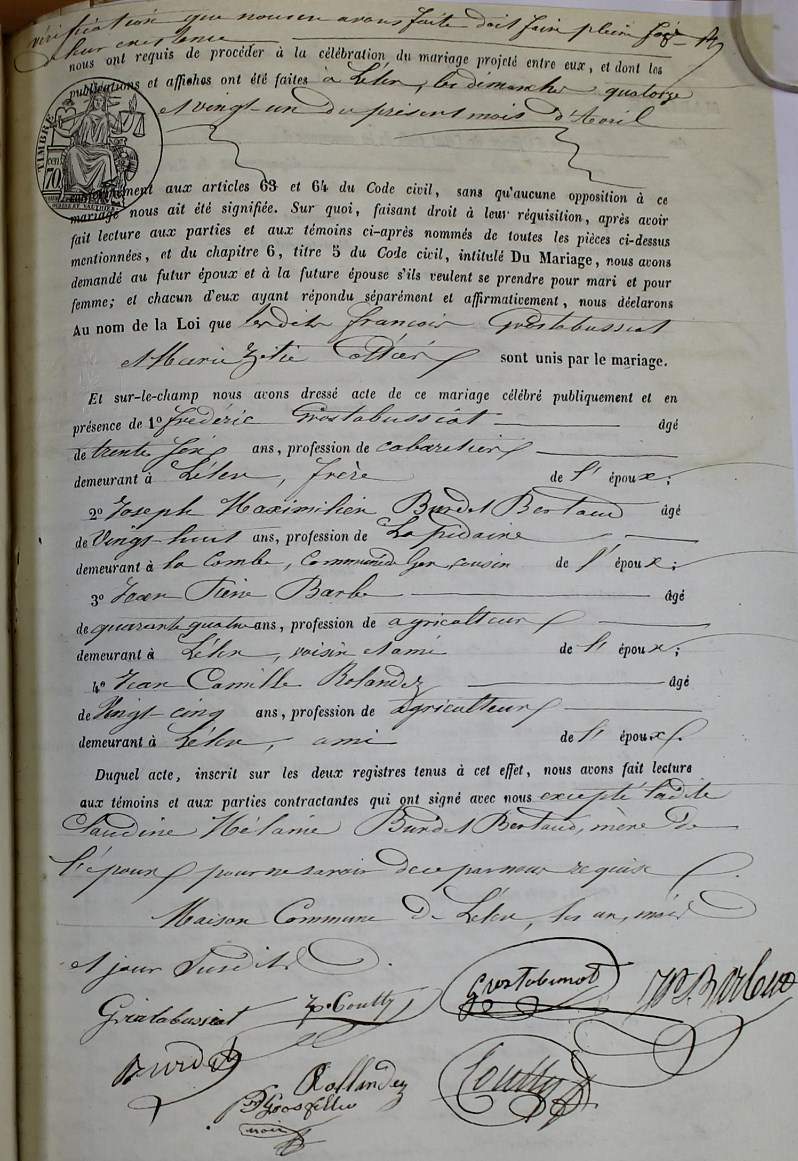 vérification que nous en avons faite doit faire pleine foi
leur existence
nous ont requis de procéder à la célébration du mariage projeté entre eux, et dont les
publications et affiches ont été faites à Lélex, les dimanches quatorze
et vingt-un du présent mois d'Avril
TIMBRE
70
conformément aux articles 63 et 64 du Code civil, sans qu'aucune opposition à ce
mariage nous ait été signifiée. Sur quoi, faisant droit à leur réquisition, après avoir
fait lecture aux parties et aux témoins ci-après nommés de toutes les pièces ci-dessus
mentionnées, et du chapitre 6, titre 5 du Code civil, intitulé Du Mariage, nous avons
demandé au futur époux et à la future épouse s'ils veulent se prendre pour mari et pour
femme; et chacun d'eux ayant répondu séparément et affirmativement, nous déclarons
Au nom de la Loi que lesdits françois Grostabussiat
et Marie Zélie sont unis par le mariage.
Et sur-le-champ nous avons dressé acte de ce mariage célébré publiquement et en
présence de 1º frédéric Grostabussiat âgé
de trente six ans, profession de cabaretier
demeurant à Lélex, frère de l'époux;
2º Joseph Maximilien Burdet Bertaud âgé
de Vingt-huit ans, profession de Lapidaire
demeurant à la Combe, commune de Gex, cousin de l'époux;
3º Jean Pierre Barbe âgé
de quarante quatre ans, profession de agriculteur
demeurant à Lélex, voisin et ami de l'époux;
4º Jean Camille Rolandez âgé
de Vingt-cinq ans, profession de agriculteur
demeurant à Lélex, ami de l'époux.
Duquel acte, inscrit sur les deux registres tenus à cet effet, nous avons fait lecture
aux témoins et aux parties contractantes qui ont signé avec nous excepté ladite
Claudine Mélanie Burdet Bertaud, mère de
l'époux pour ne savoir de ce par nous requise.
Maison Commune de Lélex, les an, mois
et jour susdits.
Grostabussiat Coutty Grostabussiat JP. Barbe
Burdet Rollandez Coutty
Grosfilley